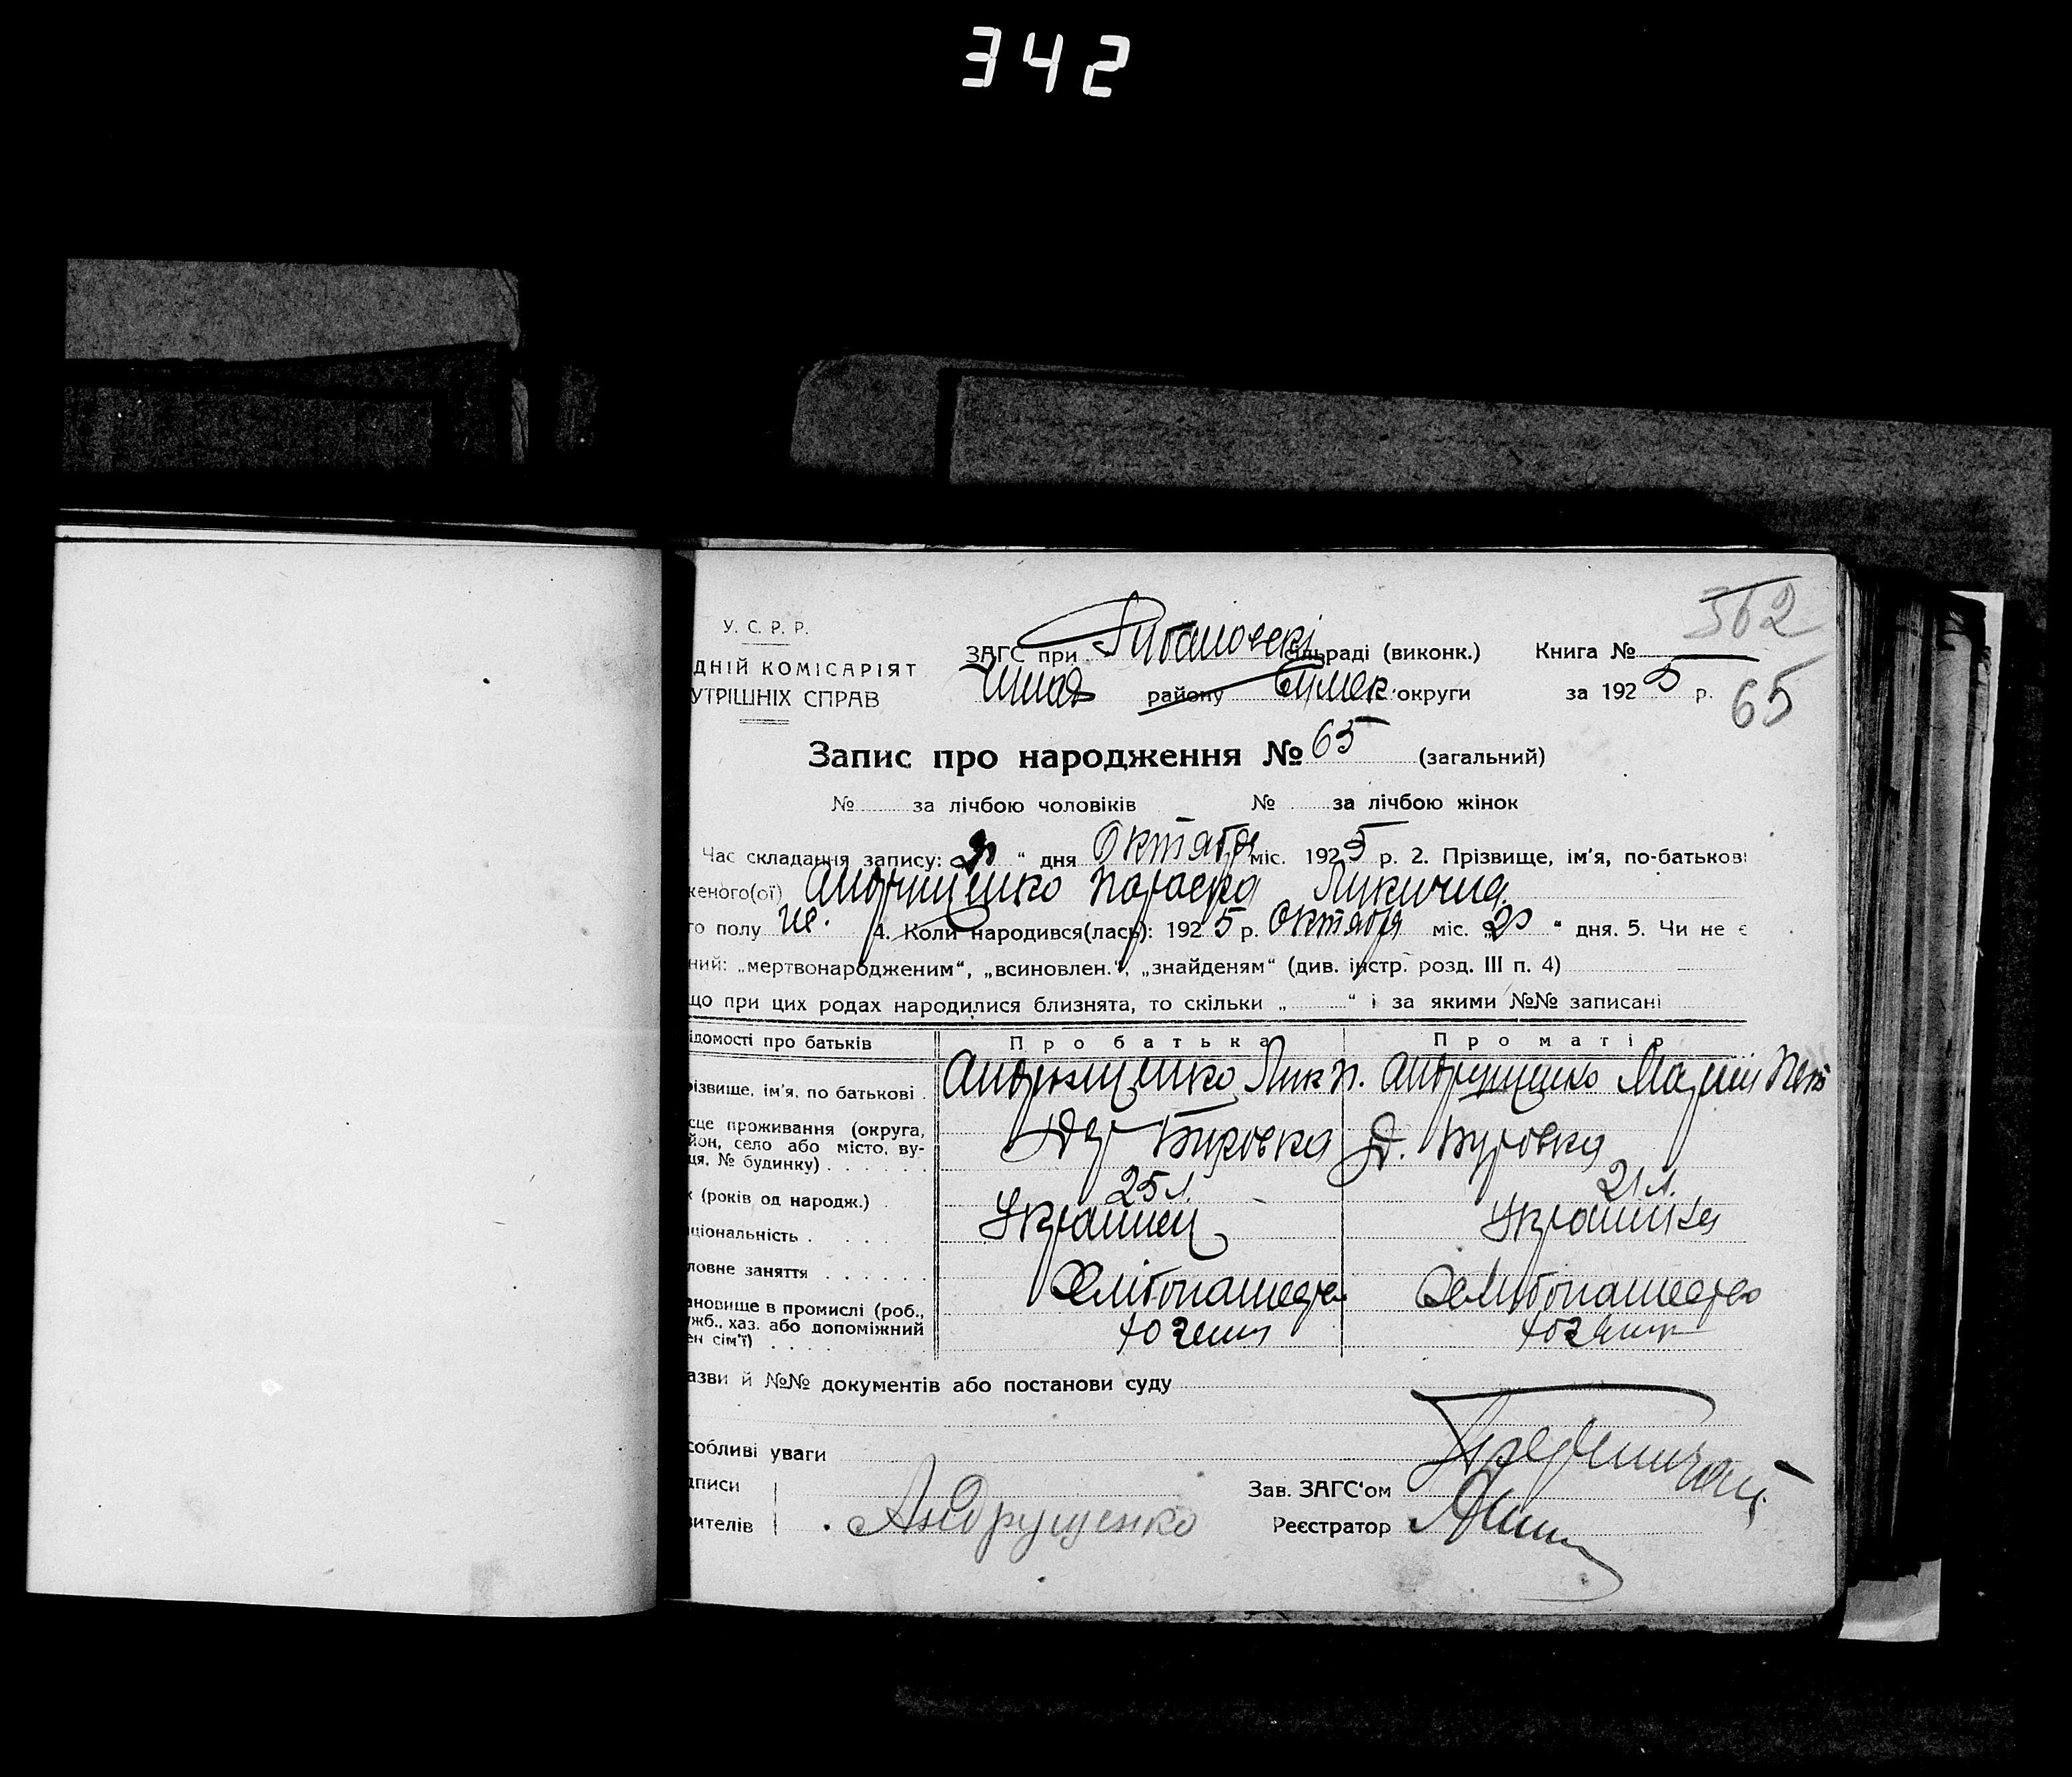 342
562
У. С. Р. Р.
ЗАГС при сільраді (виконк.) Книга №
ДНІЙ КОМІСАРІЯТ
УТРІШНІХ СПРАВ
району Сумск. округи за 1925 р. 65
Запис про народження № 65 (загальний)
№ за лічбою чоловіків № за лічбою жінок
Час складання запису: „ “ дня Октября міс. 1925 р. 2. Прізвище, ім’я, по-батькові
женого(ої) Андрущенко Параска Лукична
го полу же. 4. Коли народився(лась): 1925 р. Октября міс. „ “ дня. 5. Чи не є
ний: „мертвонародженим“, „всиновлен.“, „знайденям“ (див. інстр. розд. III п. 4)
що при цих родах народилися близнята, то скільки „ “ і за якими №№ записані
ідомості про батьків Про батька Про матір
різвище, ім’я, по батькові Андрющенко Лук П. Андрущенко Марии Пет
сце проживання (округа,
йон, село або місто, ву-
ця, № будинку) Дер Д.
к (років од народж.) 25 л. 21 л.
ціональність Украинец Украинка
ловне заняття Хлибопашество Хлибопашество
ановище в промислі (роб.,
ужб., хаз. або допоміжний
ен сім’ї)
азви й №№ документів або постанови суду
собливі уваги
дписи Зав. ЗАГС’ом
вителів Андрущенко Реєстратор